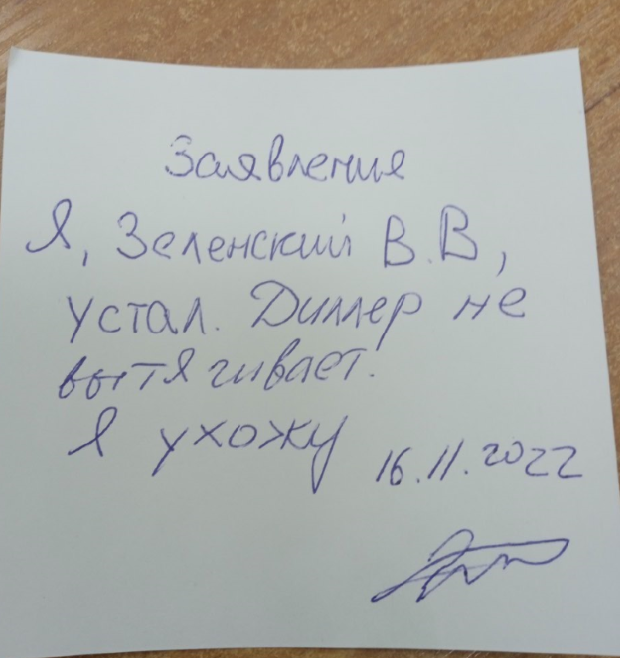 Заявления
Я, Зеленский В.В,
устал. Диллер не
вытягивает.
Я ухожу
16.11.2022